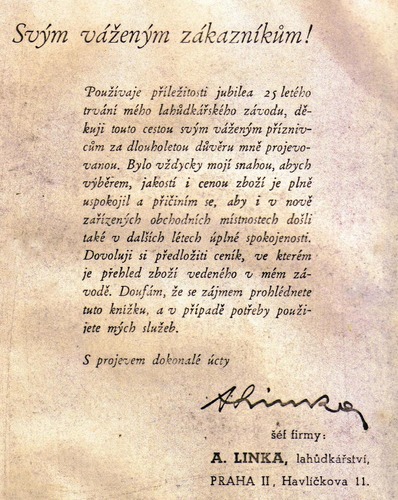 Svým váženým zákazníkům!
Používaje příležitosti jubilea 25 letého
trvání mého lahůdkářského závodu, dě-
kuji touto cestou svým váženým přízniv-
cům za dlouholetou důvěru mně projevo-
vanou. Bylo vždycky mojí snahou, abych
výběrem, jakostí i cenou zboží je plně
uspokojil a přičiním se, aby i v nově
zařízených obchodních místnostech došli
také v dalších létech úplné spokojenosti.
Dovoluji si předložiti ceník, ve kterém
je přehled zboží vedeného v mém zá-
vodě. Doufám, že se zájmem prohlédnete
tuto knížku, a v případě potřeby použi-
jete mých služeb.
S projevem dokonalé úcty
ALinka
šéf firmy:
A. LINKA, lahůdkářství,
PRAHA II, Havlíčkova 11.